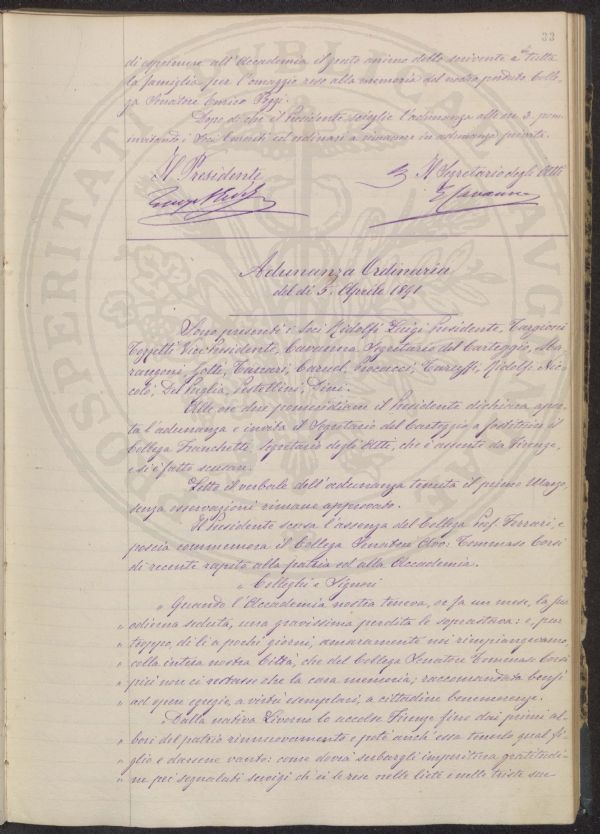 33
di esprimere all'Accademia il grato animo dello scrivente e di tutta
la famiglia per l'omaggio reso alla memoria del nostro perduto Colle-
ga Senatore Enrico Poggi.
Dopo di che il Presidente scioglie l'adunanza alle ore 3. pom.
invitando i Soci Emeriti ed ordinari a rimanere in adunanza privata.
Il Presidente
Il Segretario degli Atti
Luigi Ridolfi
Adunanza Ordinaria
del dì 5. Aprile 1891
Sono presenti i Soci Ridolfi Luigi Presidente, Targioni
Tozzetti Vice Presidente, Cavanna Segretario del Carteggio, Ma-
rangoni, Golfi, Vascari, Caruel, Tareuffi, Ridolfi Nic-
colò, Del Puglia, Pestellini, Dini.
Alle ore due pomeridiane il Presidente dichiara aper-
ta l'adunanza e invita il Segretario del Carteggio a sostituire il
Collega Franchetti Segretario degli Atti, che è assente da Firenze,
e si è fatto scusare.
Letto il verbale dell'adunanza tenuta il primo Marzo,
senza osservazioni rimane approvato.
Il Presidente scusa l'assenza del Collega Prof. Ferrari, e
poscia commemora il Collega Senatore Avv: Tommaso Corsi
di recente rapito alla patria ed alla Accademia.
" Colleghi e Signori
" Quando l'Accademia nostra teneva, or fa un mese, la sua
" odierna seduta, una gravissima perdita le soprastava: e, pur
" troppo, di lì a pochi giorni, amaramente noi rimpiangevamo,
" colla intera nostra Città, che del Collega Senatore Tommaso Corsi
" più non ci restasse che la cara memoria; raccomandata bensì
" ad opere egregie, a virtù esemplari, a cittadine benemerenze.
" Dalla nativa Livorno lo accolse Firenze fino dai primi al-
" bori del patrio rinnuovamento e potè anch'essa tenerlo qual fi-
" glio e darsene vanto: come dovrà serbargli imperitura gratitudi-
" ne pei segnalati servigi ch'ei le rese nelle liete e nelle triste sue